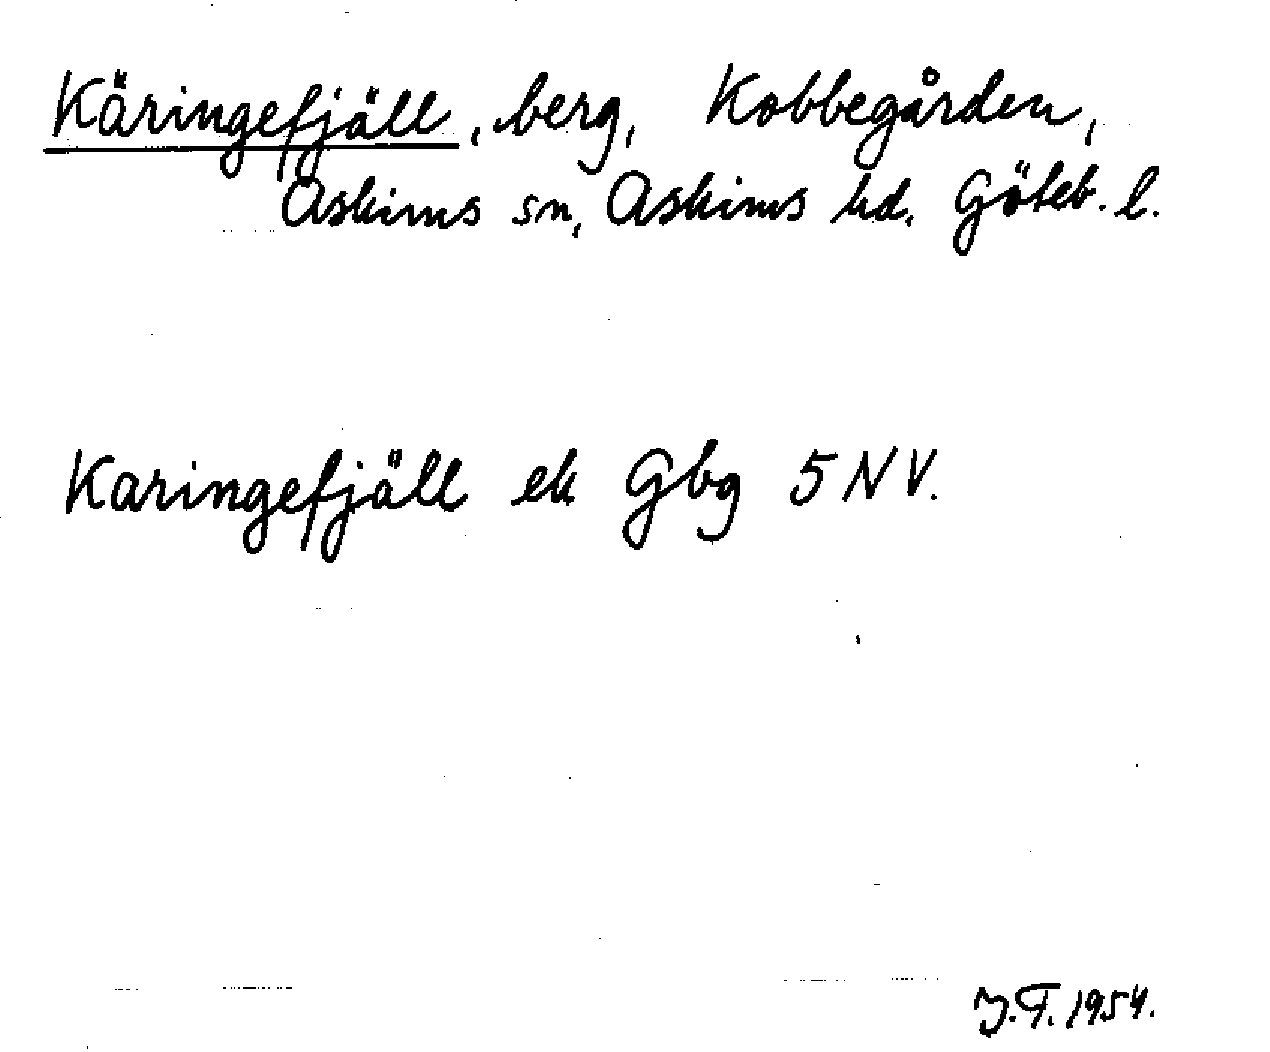 Käringefjäll, berg, Kobbegården,
Askims sn, Askims hd. Göteb. l.
Karingefjäll ek Gbg 5 NV.
J.T. 1954.